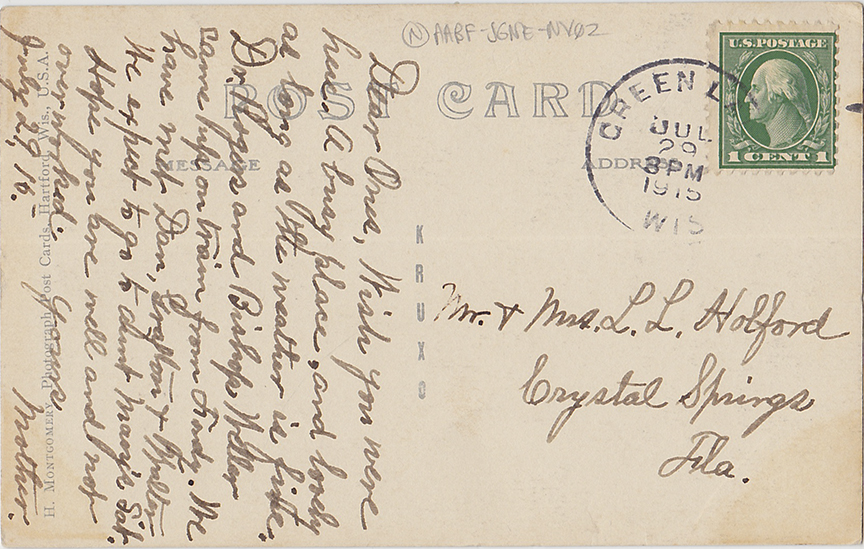 Ⓝ AABF-JGNE-NV02
POST CARD
MESSAGE
ADDRESS
U.S. POSTAGE
1 CENT 1
GREEN
JUL
29
8PM
1915
WIS
KRUXO
H. Montgomery, Photograph Post Cards, Hartford, Wis., U.S.A.
Dear Ones, Wish you were
here. A busy place, and lovely
as long as the weather is fine.
Dr. Rogers and Bishop Weller
came up on train from Fondy. We
have met Dan, Grafton &
We expect to go to Aunt Mary's Sat.
Hope you are well and not
overworked. Yours
July 29, 15. Mother.
Mr. & Mrs. L. L. Holford
Crystal Springs
Fla.